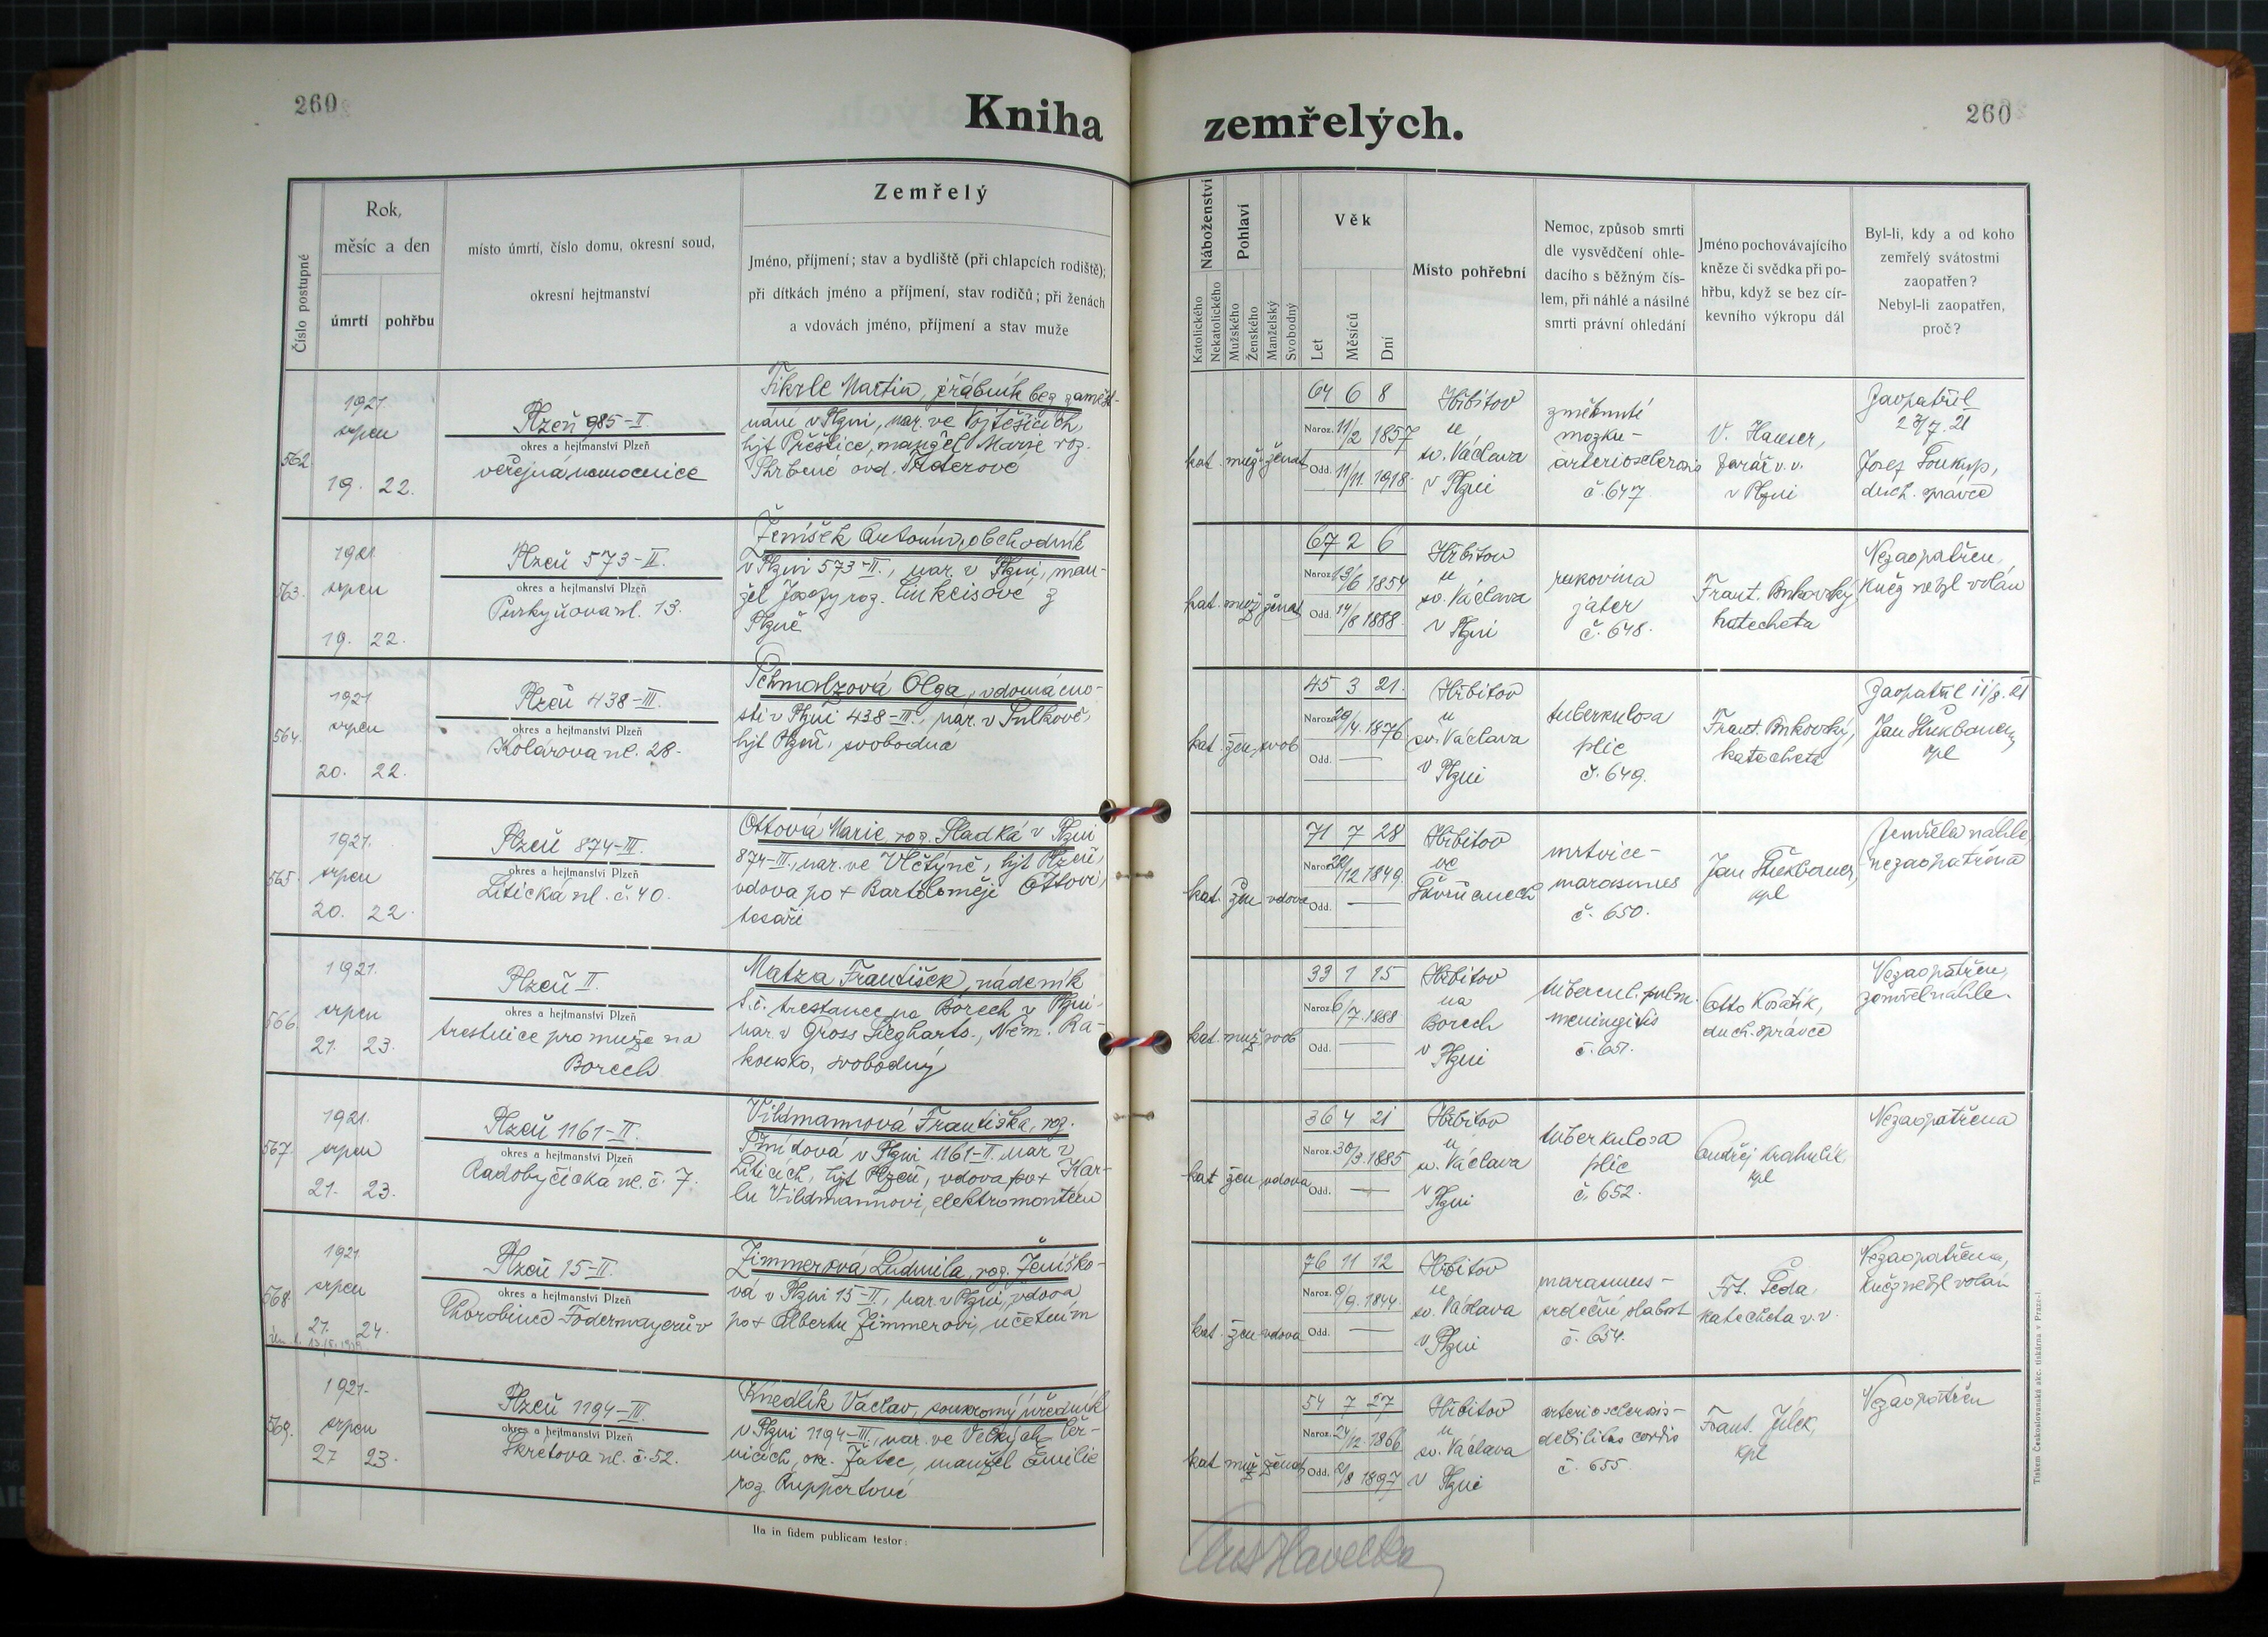 260
Kniha zemřelých.
260
Číslo postupné
Rok,
měsíc a den
úmrtí
pohřbu
místo úmrtí, číslo domu, okresní soud,
okresní hejtmanství
Zemřelý
Jméno, příjmení; stav a bydliště (při chlapcích rodiště);
při dítkách jméno a příjmení, stav rodičů; při ženách
a vdovách jméno, příjmení a stav muže
Náboženství
Katolického
Nekatolického
Pohlaví
Mužského
Ženského
Manželský
Svobodný
Věk
Let
Měsíců
Dní
Místo pohřební
Nemoc, způsob smrti
dle vysvědčení ohle-
dacího s běžným čís-
lem, při náhlé a násilné
smrti právní ohledání
Jméno pochovávajícího
kněze či svědka při po-
hřbu, když se bez cír-
kevního výkropu dál
Byl-li, kdy a od koho
zemřelý svátostmi
zaopatřen?
Nebyl-li zaopatřen,
proč?
562
1921
srpen
19. 22.
Plzeň 985-II
okres a hejtmanství Plzeň
veřejná nemocnice
Fikrle Martin, jeřábník bez zaměst-
nání v Plzni, nar. ve Vojtěšicích,
hjt Přeštice, manžel Marie roz.
Skrbené ovd.
kat. muž. ženat
64 6 8
Naroz. 11/2 1857
Odd. 11/11. 1918.
Hřbitov
u
sv. Václava
v Plzni
změknutí
mozku-
arteriosclerosis
č. 647.
V. Hauser,
farář v. v.
v Plzni
Zaopatřil
27/7. 21
Josef Soukup,
duch. správce
563.
1921
srpen
19. 22.
Plzeň 573-II.
okres a hejtmanství Plzeň
Purkyňova ul. 13.
Ženíšek Antonín, obchodník
v Plzni 573-II., nar. v Plzni, man-
žel Josefy roz. Linkeisové z
Plzně
kat. muž ženat
67 2 6
Naroz. 13/6 1854
Odd. 14/8 1888.
Hřbitov
u
sv. Václava
v Plzni
rakovina
jater
č. 648.
Frant. Bukovský,
katecheta
Nezaopatřen,
kněz nebyl volán
564.
1921
srpen
20. 22.
Plzeň 438-III.
okres a hejtmanství Plzeň
Kolárova ul. 28.
Schmalzová Olga, v domácno-
sti v Plzni 438-III., nar. v Sulkově,
hjt Plzeň, svobodná
kat. žen. svob
45 3 21.
Naroz. 29/4. 1876
Odd. —
Hřbitov
u
sv. Václava
v Plzni
tuberkulosa
plic
č. 649.
Frant. Bukovský,
katecheta
Zaopatřil 11/8. 21
Jan
kpl
565.
1921.
srpen
20. 22.
Plzeň 874-III.
okres a hejtmanství Plzeň
Litická ul. č. 40.
Ottová Marie, roz. Sladká v Plzni
874-III., nar. ve Vlčtýně, hjt Plzeň,
vdova po + Bartoloměji Ottovi,
tesaři
kat. žen vdova
71 7 28
Naroz. 22/12 1849.
Odd. —
Hřbitov
ve
Skvrňanech
mrtvice-
marasmus
č. 650.
Jan
kpl
Zemřela náhle,
nezaopatřena
566
1921.
srpen
21. 23.
Plzeň II.
okres a hejtmanství Plzeň
trestnice pro muže na
Borech
Matza František, nádeník
t. č. trestanec na Borech v Plzni,
nar. v Gross Siegharts., Něm. Ra-
kousko, svobodný
kat. muž. svob
33 1 15
Naroz. 6/7. 1888
Odd. —
Hřbitov
na
Borech
v Plzni
tubercul. pulm.
meningitis
č. 651.
Otto Košatík,
duch. správce
Nezaopatřen,
zemřel náhle.
567.
1921.
srpen
21. 23.
Plzeň 1161-II.
okres a hejtmanství Plzeň
Radobyčická ul. č. 7.
Vildmannová Františka, roz.
Šmídová v Plzni 1161-II. nar. v
Liticích, hjt Plzeň, vdova po + Kar-
lu Vildmannovi, elektromontéru
kat žen vdova
36 4 21
Naroz. 30/3. 1885
Odd. —
Hřbitov
u
sv. Václava
v Plzni
tuberkulosa
plic
č. 652.
Ondřej Krahulík
kpl
Nezaopatřena
568
1921
srpen
21. 24.
Plzeň 15-II.
okres a hejtmanství Plzeň
Chorobinec Fodermayerův
Zimmerová Ludmila, roz. Ženíško-
vá v Plzni 15-II., nar. v Plzni, vdova
po + Albertu Zimmerovi, účetním
kat. žen vdova
76 11 12
Naroz. 9/9. 1844
Odd. —
Hřbitov
u
sv. Václava
v Plzni
marasmus-
srdeční slabost
č. 654.
Frt. Šeda,
katecheta v. v.
Nezaopatřena,
kněz nebyl volán
569.
1921.
srpen
21 23.
Plzeň 1194-III.
okres a hejtmanství Plzeň
Škrétova ul. č. 52.
Knedlík Václav, soukromý úředník
v Plzni 1194-III., nar. ve Velkých Čer-
nicích, ok. Žatec, manžel Emilie
roz Ruppertové
kat muž ženat
54 7 27
Naroz. 24/12. 1866
Odd. 2/8 1897
Hřbitov
u
sv. Václava
v Plzni
arteriosclerosis-
debilitas cordis
č. 655.
Frant. Jílek,
kpl
Nezaopatřen
Ita in fidem publicam testor:
Havelka
Tiskem Československá akc. tiskárna v Praze-I